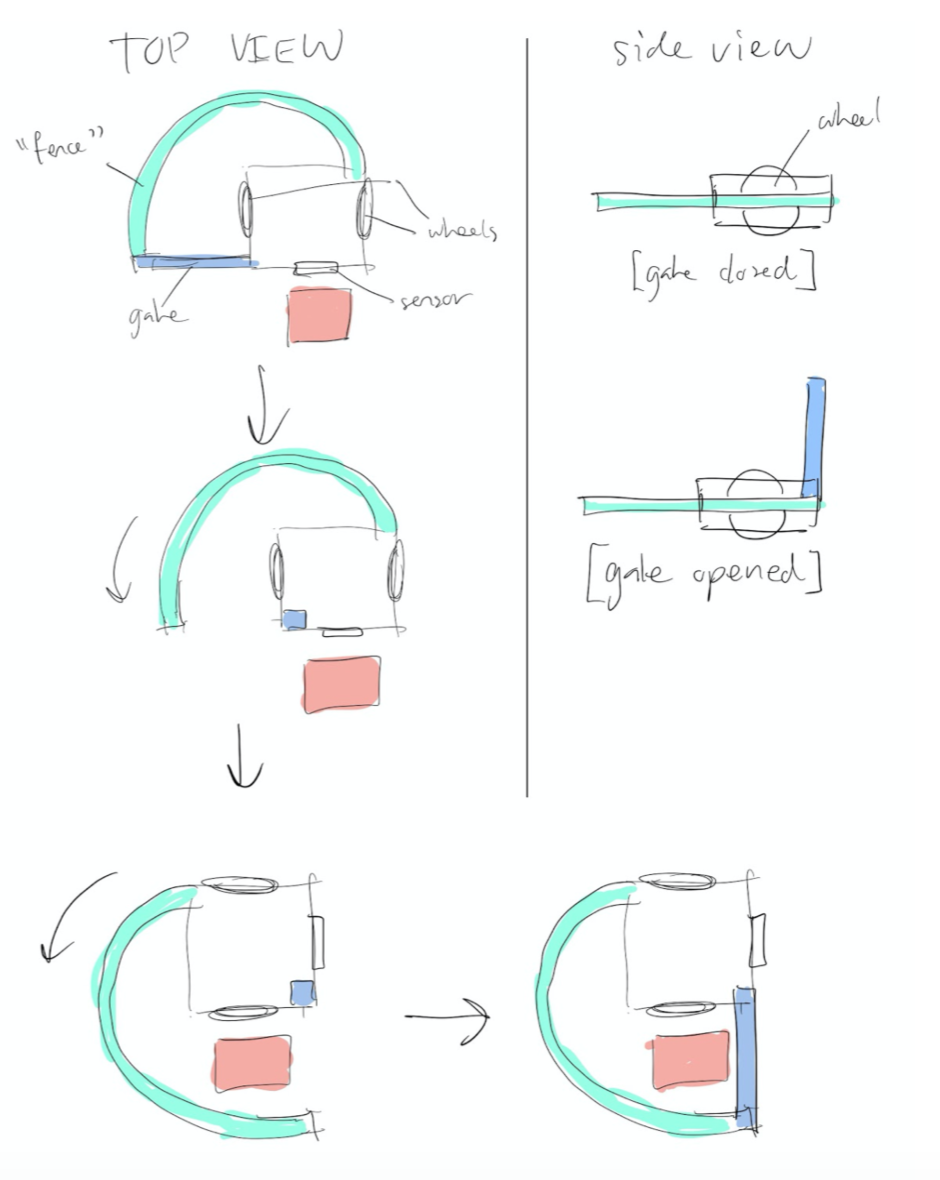 TOP VIEW
"fence"
wheels
gate
sensor
side view
wheel
[gate closed]
[gate opened]